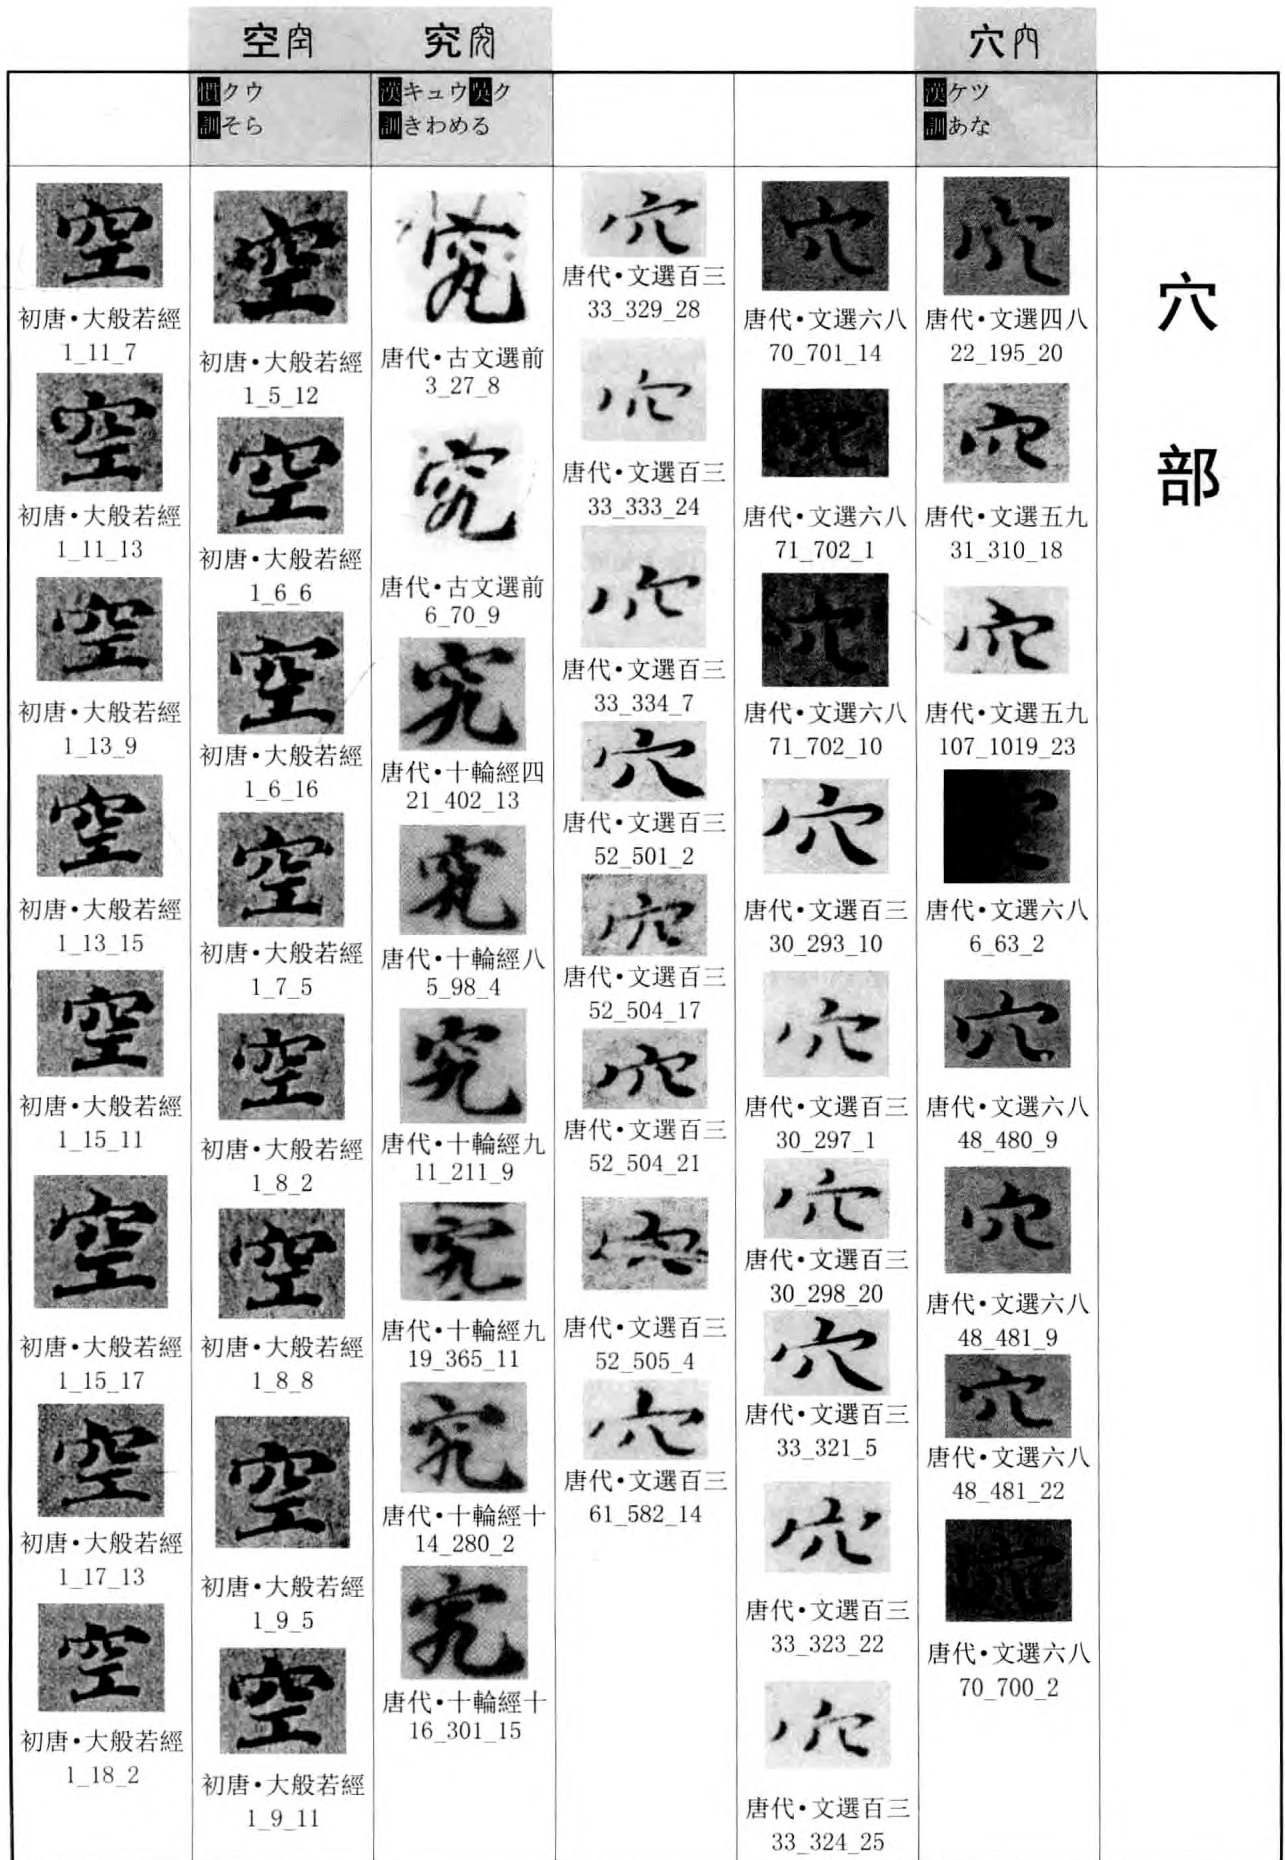 穴部
穴 穴
漢ケツ
訓あな
穴
唐代・文選四八
22_195_20
穴
唐代・文選五九
31_310_18
穴
唐代・文選五九
107_1019_23
唐代・文選六八
6_63_2
穴
唐代・文選六八
48_480_9
穴
唐代・文選六八
48_481_9
穴
唐代・文選六八
48_481_22
穴
唐代・文選六八
70_700_2
穴
唐代・文選六八
70_701_14
穴
唐代・文選六八
71_702_1
穴
唐代・文選六八
71_702_10
穴
唐代・文選百三
30_293_10
穴
唐代・文選百三
30_297_1
穴
唐代・文選百三
30_298_20
穴
唐代・文選百三
33_321_5
穴
唐代・文選百三
33_323_22
穴
唐代・文選百三
33_324_25
穴
唐代・文選百三
33_329_28
穴
唐代・文選百三
33_333_24
穴
唐代・文選百三
33_334_7
穴
唐代・文選百三
52_501_2
穴
唐代・文選百三
52_504_17
穴
唐代・文選百三
52_504_21
穴
唐代・文選百三
52_505_4
穴
唐代・文選百三
61_582_14
究 究
漢キュウ呉ク
訓きわめる
究
唐代・古文選前
3_27_8
究
唐代・古文選前
6_70_9
究
唐代・十輪經四
21_402_13
究
唐代・十輪經八
5_98_4
究
唐代・十輪經九
11_211_9
究
唐代・十輪經九
19_365_11
究
唐代・十輪經十
14_280_2
究
唐代・十輪經十
16_301_15
空 空
慣クウ
訓そら
空
初唐・大般若經
1_5_12
空
初唐・大般若經
1_6_6
空
初唐・大般若經
1_6_16
空
初唐・大般若經
1_7_5
空
初唐・大般若經
1_8_2
空
初唐・大般若經
1_8_8
空
初唐・大般若經
1_9_5
空
初唐・大般若經
1_9_11
空
初唐・大般若經
1_11_7
空
初唐・大般若經
1_11_13
空
初唐・大般若經
1_13_9
空
初唐・大般若經
1_13_15
空
初唐・大般若經
1_15_11
空
初唐・大般若經
1_15_17
空
初唐・大般若經
1_17_13
空
初唐・大般若經
1_18_2